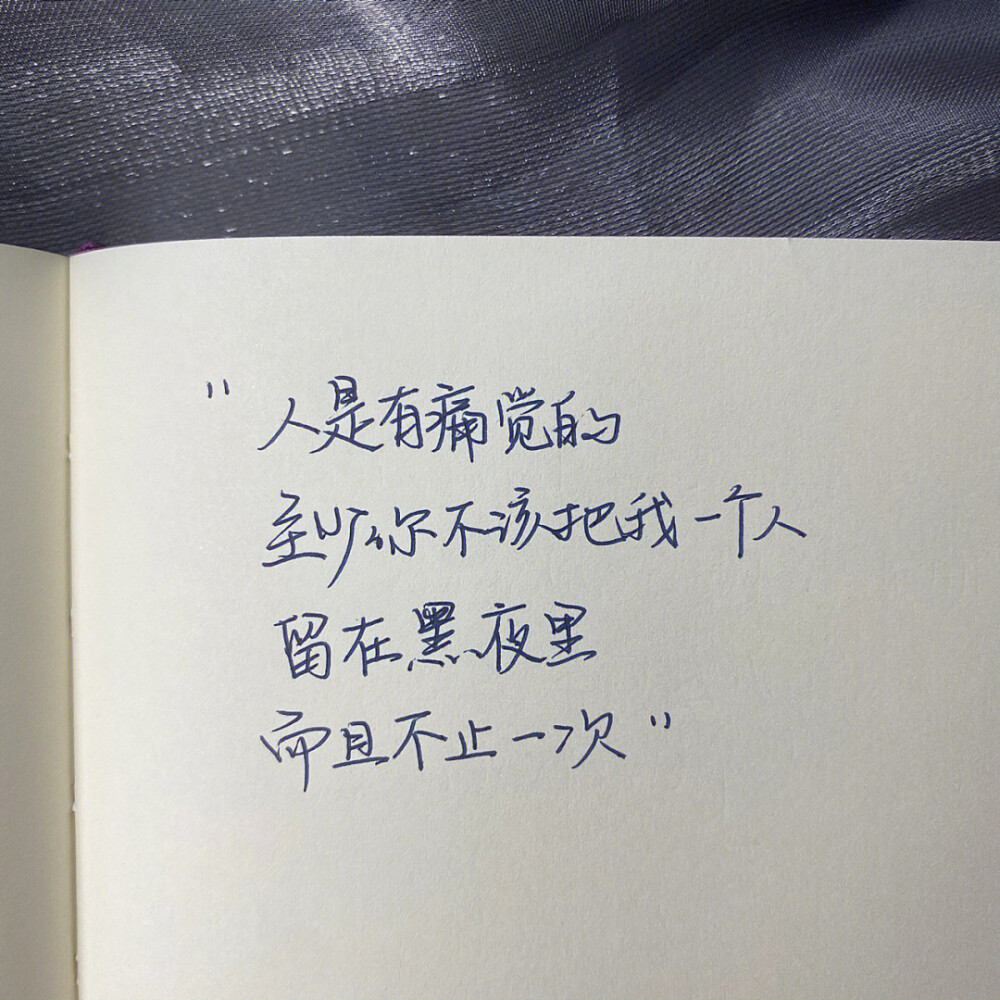 "人是有痛觉的
至少你不该把我一个人
留在黑夜里
而且不止一次"